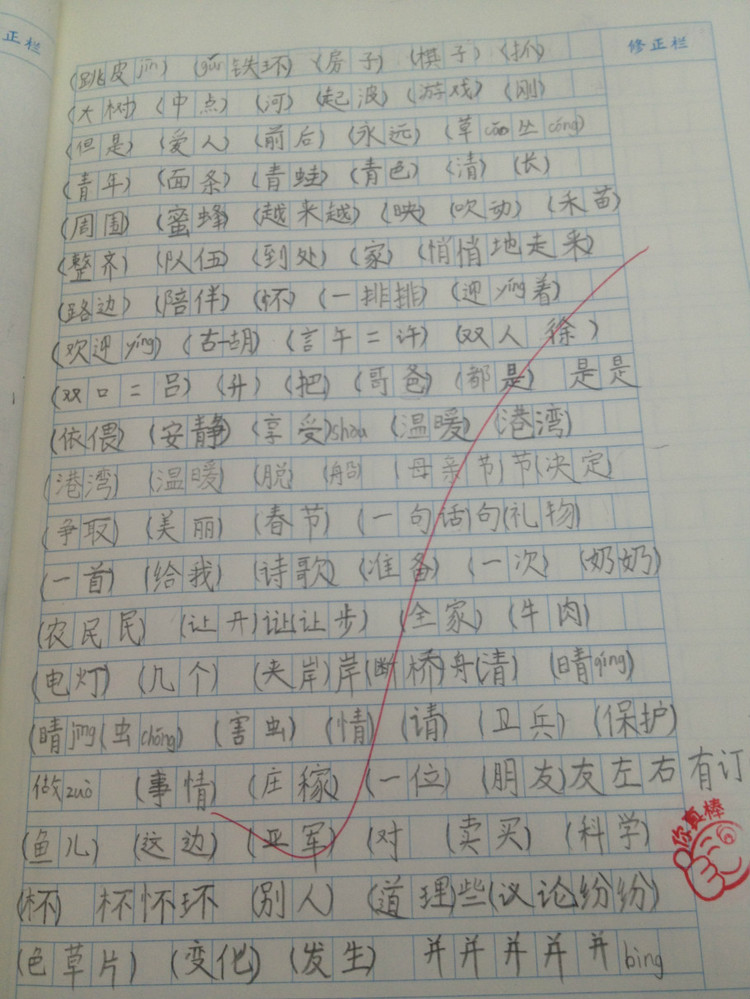 正栏
修正栏
(跳皮jīn) (gǔn铁环) (房子) (棋子) (扒)
(大树) (中点) (河) (起波) (游戏) (刚)
(但是) (爱人) (前后) (永远) (草cǎo丛cóng)
(青年) (面条) (青蛙) (青色) (清) (长)
(周围) (蜜蜂) (越来越) (映) (吹动) (禾苗)
(整齐) (队伍) (到处) (家) (悄悄地走来)
(路边) (陪伴) (怀) (一排排) (迎yíng着)
(欢迎yíng) (古-胡) (言午=许) (双人徐)
(双口=吕) (升) (把) (哥爸) (都是) 是是
(依偎) (安静) (享受)shòu (温暖) (港湾)
(港湾) (温暖) (脱) (船) (母亲节)节(决定)
(争取) (美丽) (春节) (一句话)句(礼物)
(一首) (给我) (诗歌) (准备) (一次) (奶奶)
(农民民) (让开)让让步) (全家) (牛肉)
(电灯) (几个) (夹岸)岸(断桥)舟(清) (晴qíng)
(睛jīng(虫chóng) (害虫) (情) (请) (卫兵) (保护)
做zuò (事情) (庄稼) (一位) (朋友)友左右有订
(鱼儿) (这边) (亚军) (对 (卖买) (科学)
你真棒
(杯) 杯怀环 (别人) (道理)些(议论纷纷)
(色草片) (变化) (发生) 并并并并并bìng